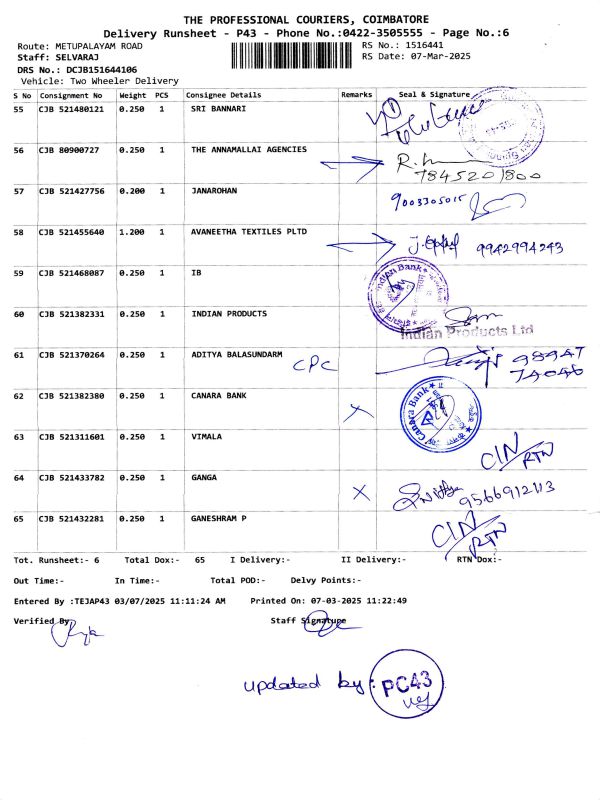 THE PROFESSIONAL COURIERS, COIMBATORE
Delivery Runsheet - P43 - Phone No.:0422-3505555 - Page No.:6
Route: METUPALAYAM ROAD RS No.: 1516441
Staff: SELVARAJ RS Date: 07-Mar-2025
DRS No.: DCJB151644106
Vehicle: Two Wheeler Delivery
S No Consignment No Weight PCS Consignee Details Remarks Seal & Signature
55 CJB 521480121 0.250 1 SRI BANNARI
56 CJB 80900727 0.250 1 THE ANNAMALLAI AGENCIES
7845201800
57 CJB 521427756 0.200 1 JANAROHAN 9003305015
58 CJB 521455640 1.200 1 AVANEETHA TEXTILES PLTD 9942994243
59 CJB 521468087 0.250 1 IB Indian Bank
60 CJB 521382331 0.250 1 INDIAN PRODUCTS
Indian Products Ltd
61 CJB 521370264 0.250 1 ADITYA BALASUNDARM CPC
62 CJB 521382380 0.250 1 CANARA BANK X Canara Bank
63 CJB 521311601 0.250 1 VIMALA CIN/RTN
64 CJB 521433782 0.250 1 GANGA X 9566912113
65 CJB 521432281 0.250 1 GANESHRAM P CIN/RTN
Tot. Runsheet:- 6 Total Dox:- 65 I Delivery:- II Delivery:- RTN Dox:-
Out Time:- In Time:- Total POD:- Delvy Points:-
Entered By :TEJAP43 03/07/2025 11:11:24 AM Printed On: 07-03-2025 11:22:49
Verified By Staff Signature
updated by: PC43